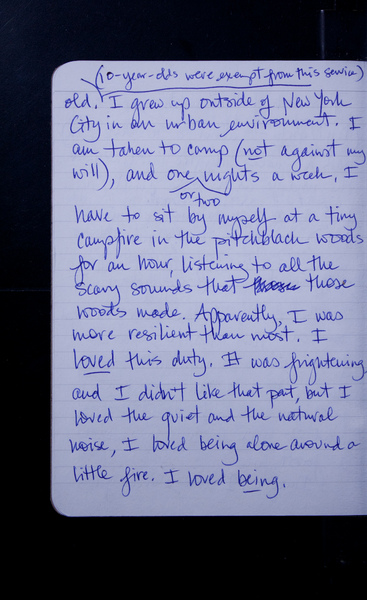 (10-year-olds were exempt from this service)
old. I grew up outside of New York
City in an urban environment. I
am taken to camp (not against my
will), and one nights a week, I
or two
have to sit by myself at a tiny
campfire in the pitchblack woods
for an hour, listening to all the
scary sounds that those
woods made. Apparently, I was
more resilient than most. I
loved this duty. It was frightening
and I didn't like that part, but I
loved the quiet and the natural
noise, I loved being alone around a
little fire. I loved being.